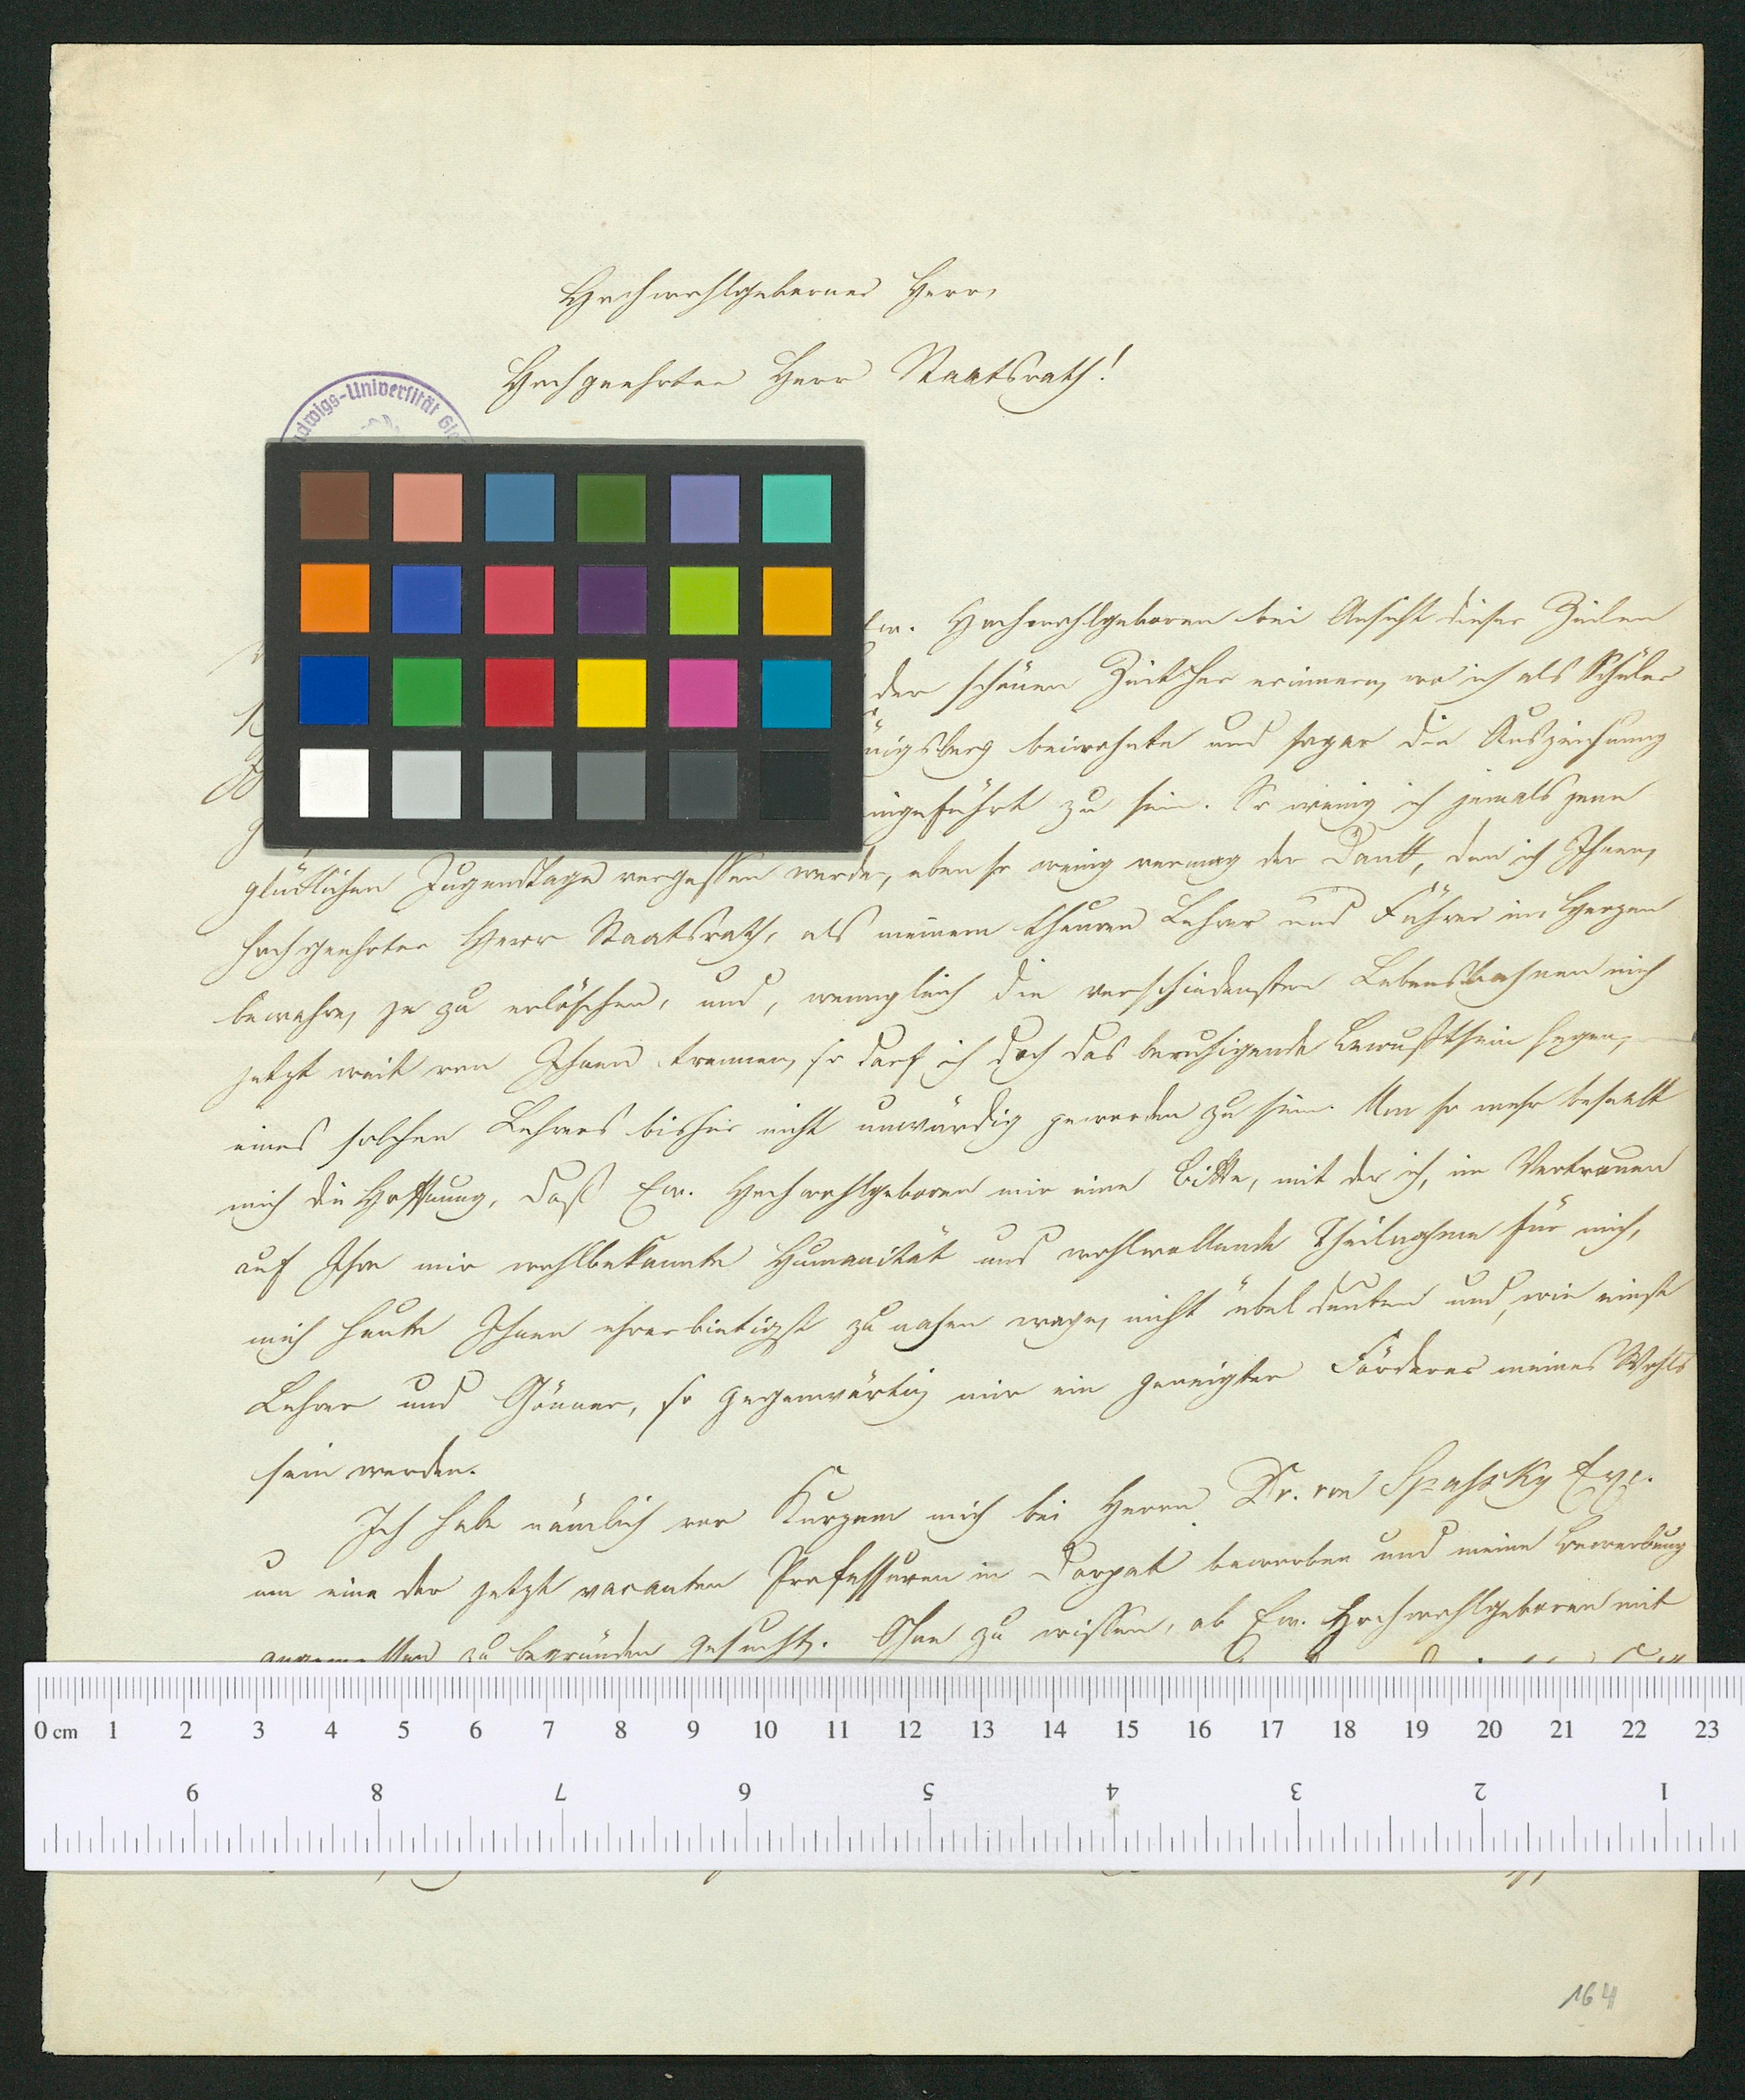 Hochwohlgeborner Herr,
Hochgeehrter Herr Staatsrath!
dwigs-Universität Gie
Ew. Hochwohlgeboren bei Ansicht dieser Zeilen
der schönen Zeit her erinnern, wo ich als Schüler
nigsberg beiwohnte und sogar die Auszeichnung
ingeführt zu sein. So wenig ich jemals jene
glücklichen Jugendtage vergessen werde, eben so wenig vermag der Dank, den ich Ihnen,
hochgeehrter Herr Staatsrath, als meinem theuren Lehrer und Führer im Herzen
bewahre, je zu erlöschen, und, wenngleich die verschiedensten Lebensbahnen mich
jetzt weit von Ihnen trennen, so darf ich doch das beruhigende Bewußtsein hegen,
eines solchen Lehrers bisher nicht unwürdig geworden zu sein. Um so mehr beseelt
mich die Hoffnung, daß Ew. Hochwohlgeboren mir eine Bitte, mit der ich, im Vertrauen
auf Ihre mir wohlbekannte Humanität und wohlwollende Theilnahme für mich,
mich heute Ihnen ehrerbietigst zu nahen wage, nicht übel deuten und, wie einst
Lehrer und Gönner, so gegenwärtig mir ein geneigter Förderer meines Wohls
sein werden.
Ich habe nämlich vor Kurzem mich bei Herrn Dr. von Spassky Exc.
um eine der jetzt vacanten Professuren in Dorpat beworben und meine Bewerbung
angemessen zu begründen gesucht. Ohne zu wissen, ob Ew. Hochwohlgeboren mit
0 cm 1 2 3 4 5 6 7 8 9 10 11 12 13 14 15 16 17 18 19 20 21 22 23
9 8 7 6 5 4 3 2 1
164